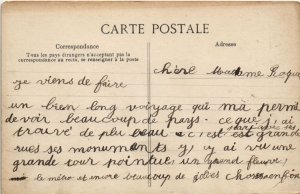 CARTE POSTALE
Correspondance
Tous les pays étrangers n'acceptant pas la
correspondance au recto, se renseigner à la poste
Adresse
chère Madame
je viens de faire
un bien long voyage qui ma permi
de voir beaucoup de pays. ce que j'ai
trouvé de plu beau c c'est
avec ses
rues ses monuments j'y ai vu une
grande tour pointue, un grand fleuve,
le métro et encore beaucoup de jolies choses